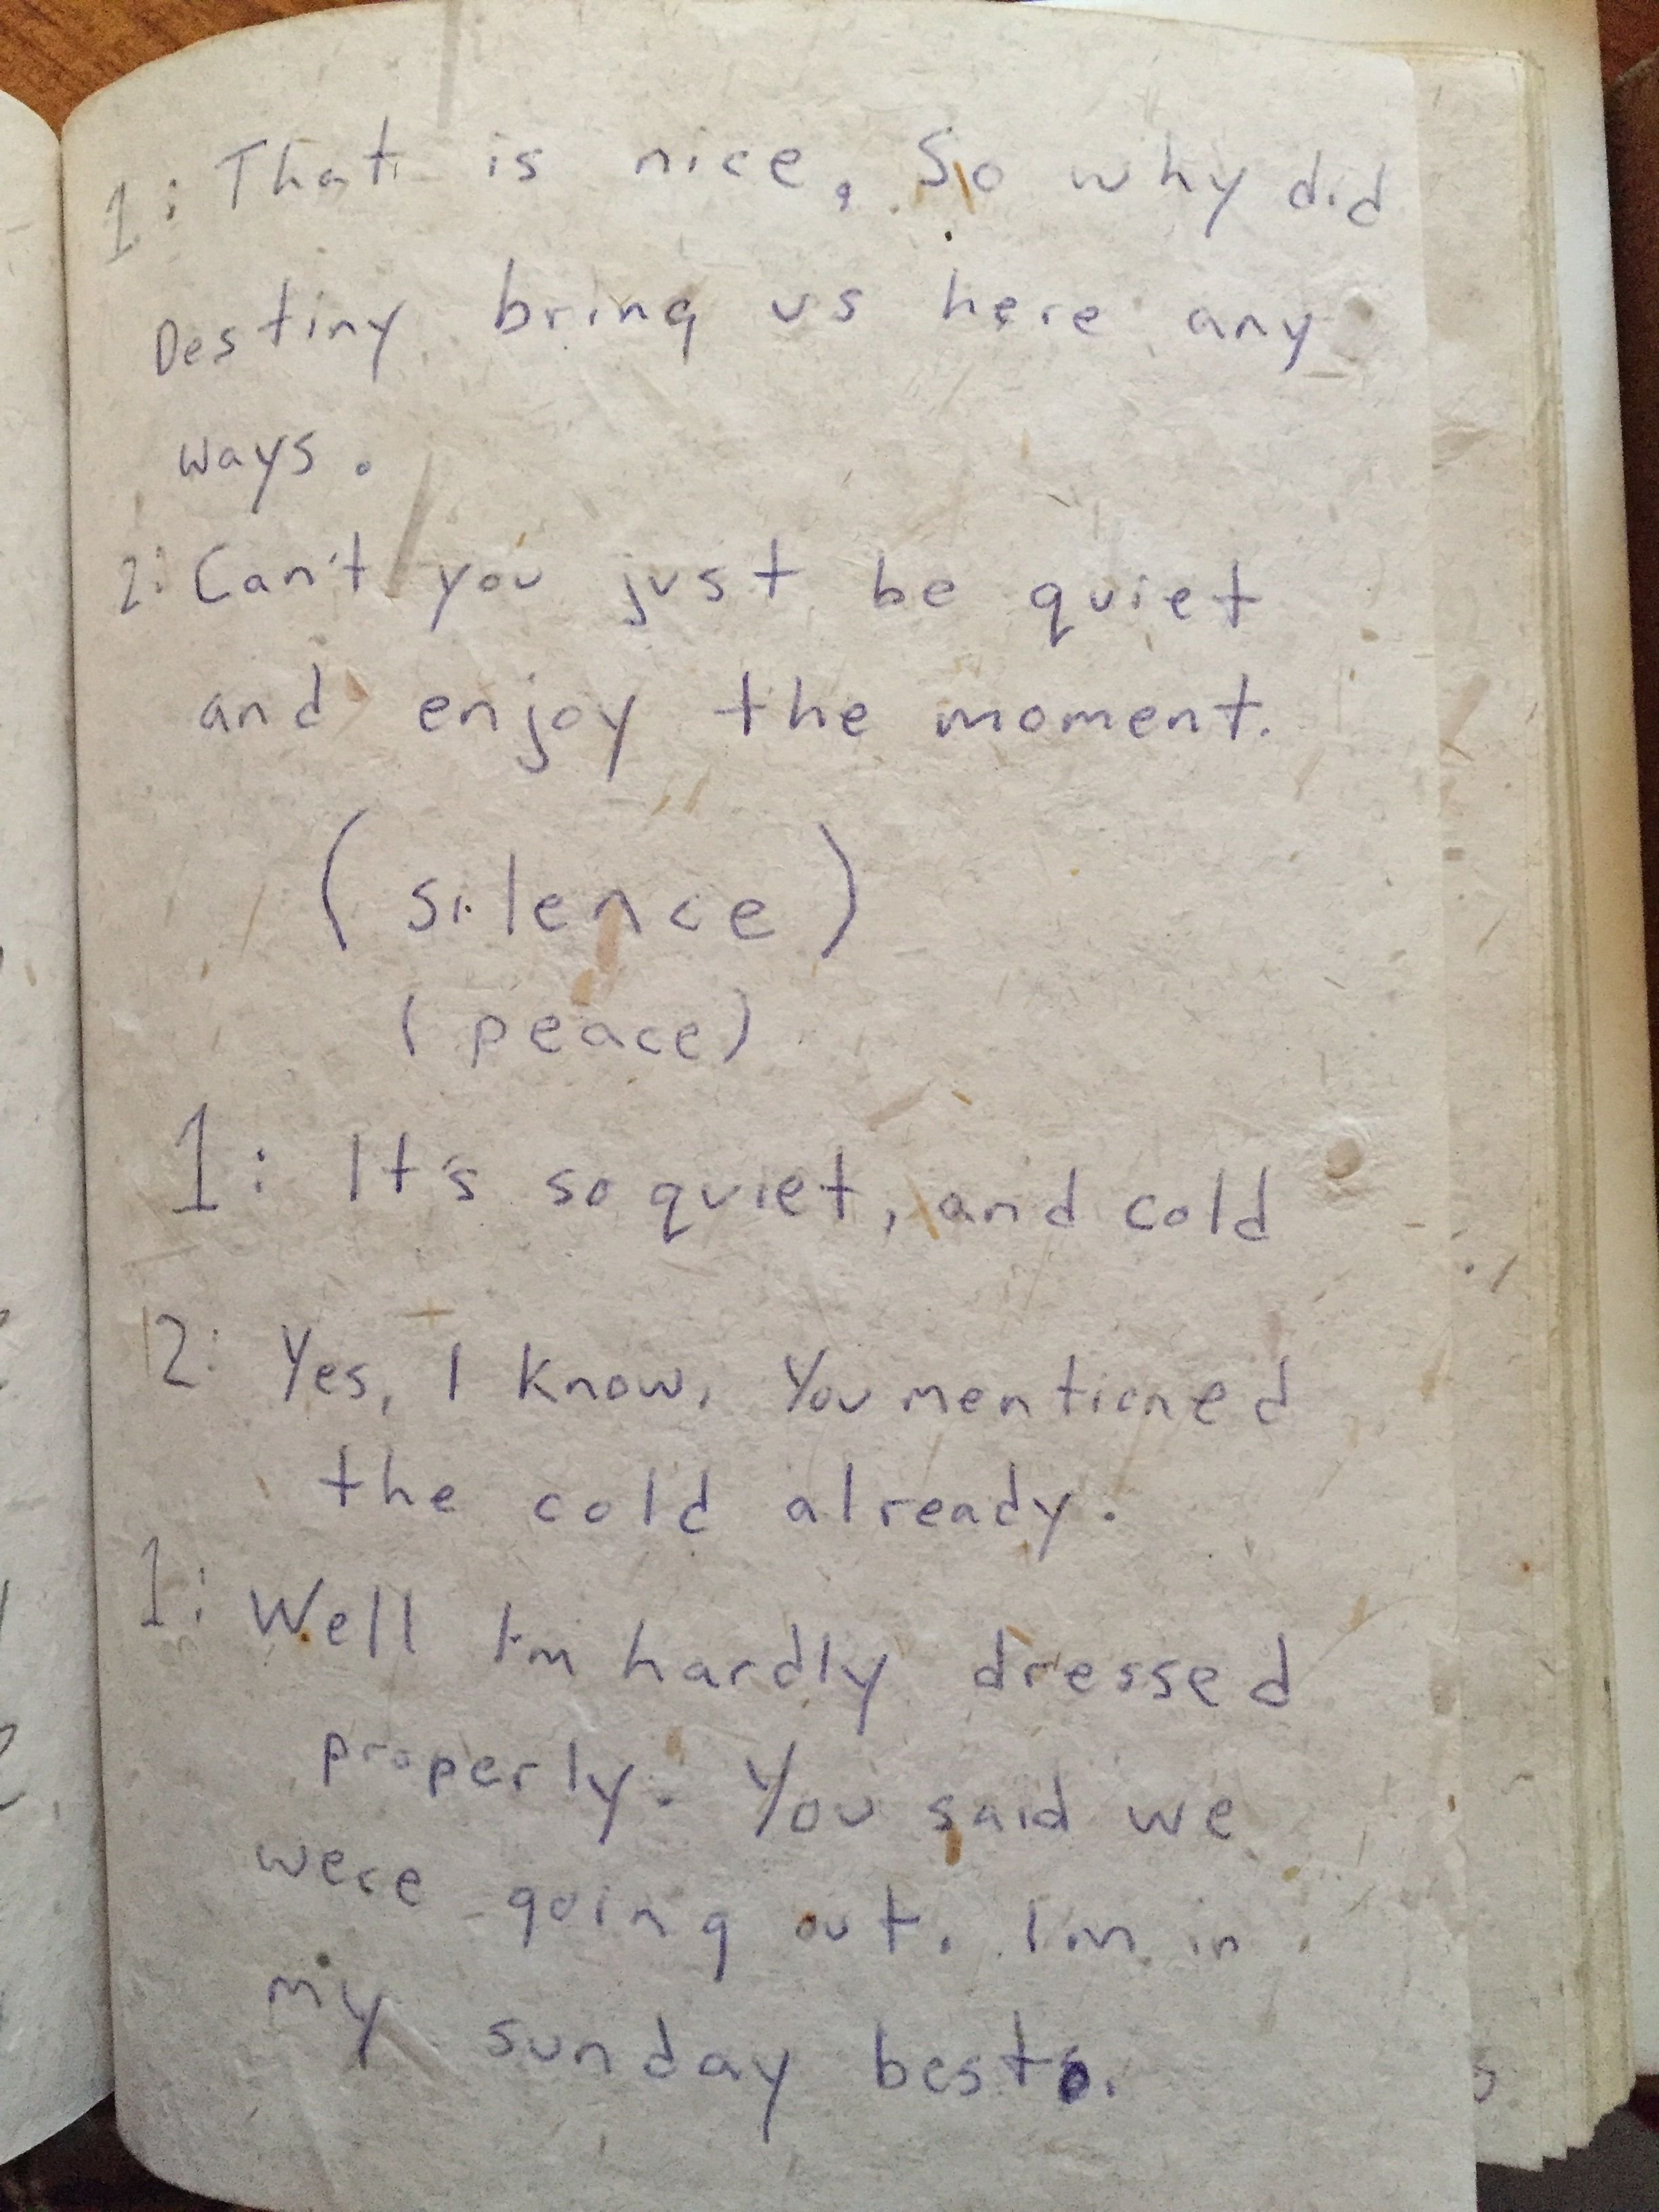 1: That is nice. So why did
Destiny bring us here any
ways.
2: Can't you just be quiet
and enjoy the moment.
(silence)
(peace)
1: It's so quiet, and cold
2: Yes, I know. You mentioned
the cold already.
1: Well I'm hardly dressed
properly. You said we
were going out. I'm in
my sunday best.